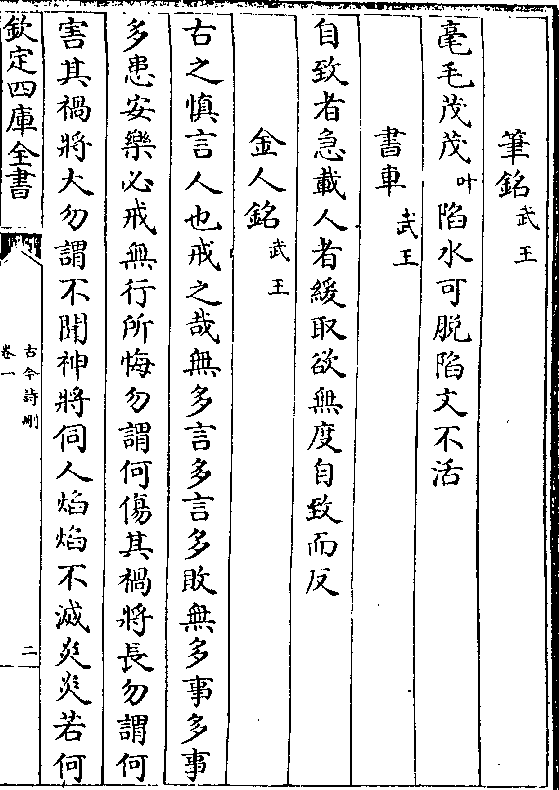 筆銘武王
毫毛茂茂叶陷水可脱陷文不活
書車武王
自致者急載人者緩取欲無度自致而反
金人銘武王
古之慎言人也戒之哉無多言多言多敗無多事多事
多患安樂必戒無行所悔勿謂何傷其禍將長勿謂何
害其禍將大勿謂不聞神將伺人焰焰不滅炎炎若何
欽定四庫全書
古今詩刪
卷一
二